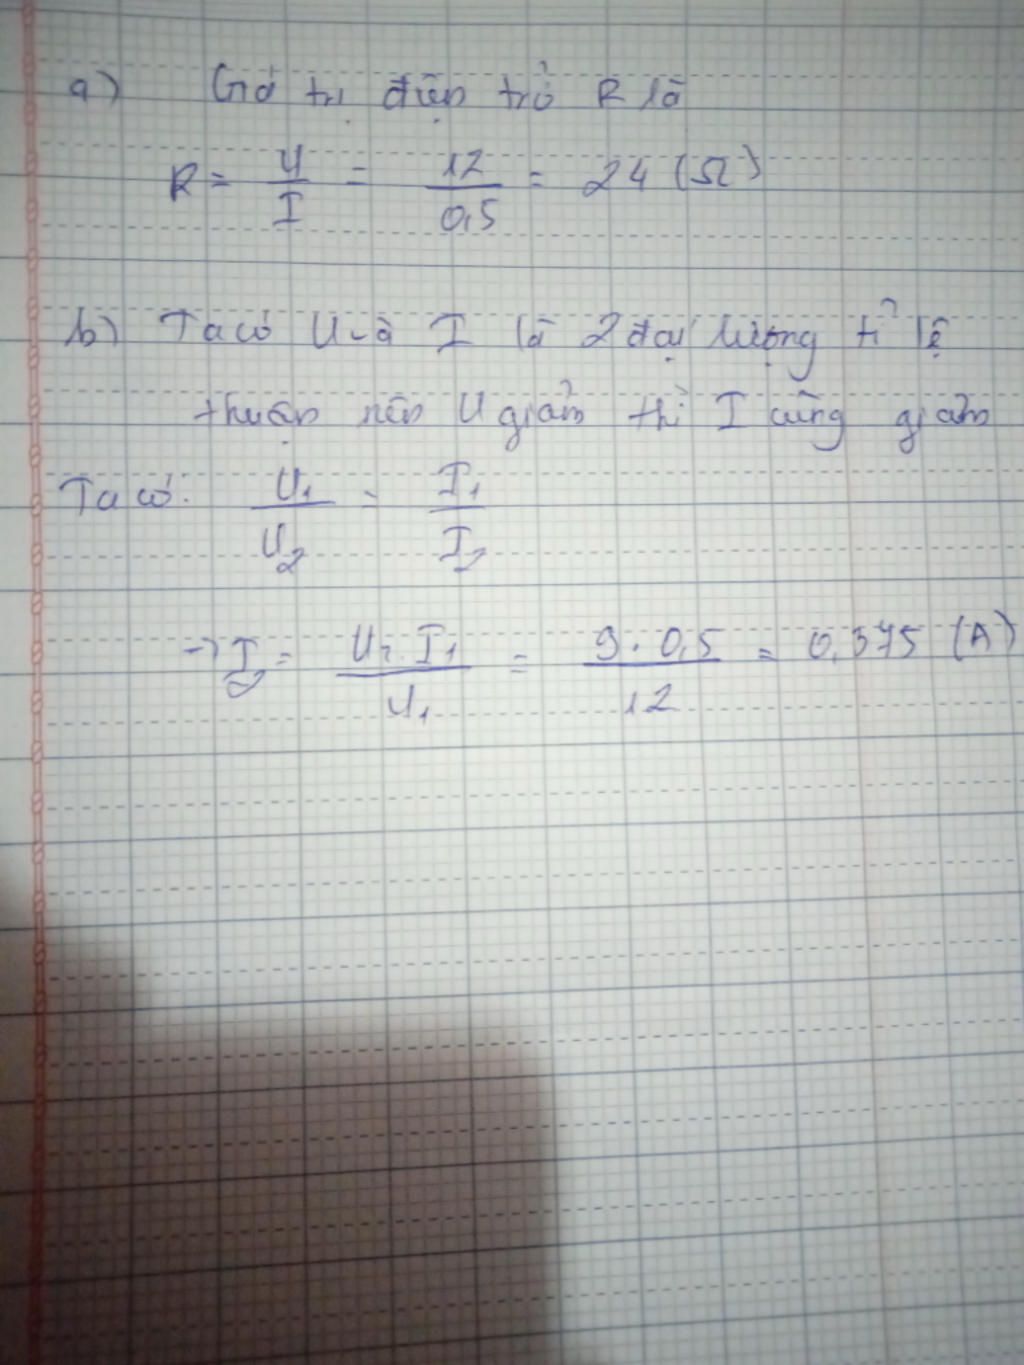 a) Giá trị điện trở R là
R = U/I = 12/0,5 = 24 (Ω)
b) Ta có U và I là 2 đại lượng tỉ lệ
thuận nên U giảm thì I cũng giảm
Ta có: U₁/U₂ = I₁/I₂
→ I₂ = U₂. I₁/U₁ = 9. 0,5/12 = 0,375 (A)